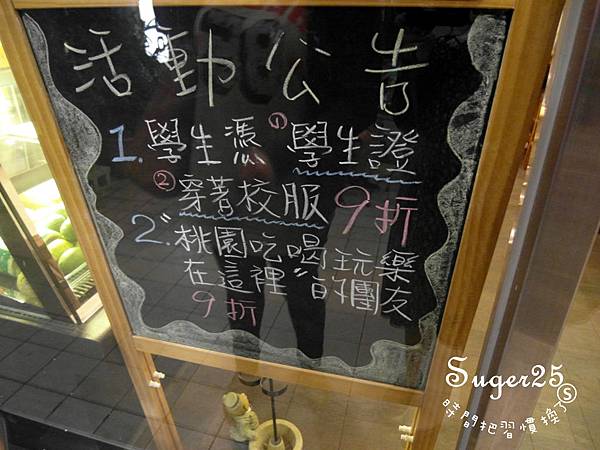 活動公告
1. 學生憑 ① 學生證
② 穿著校服 9折
2. 桃園吃喝玩樂
在這裡 皆 團友
9折
Suger25
時間把習慣換了 S